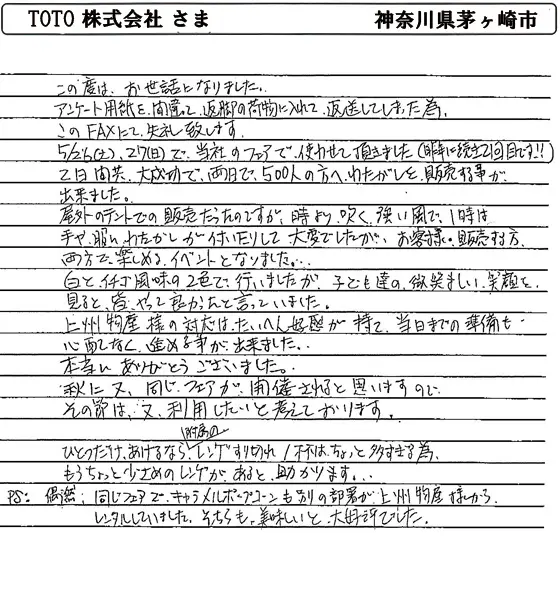 TOTO 株式会社 さま 神奈川県茅ヶ崎市
この度は、お世話になりました。
アンケート用紙を、間違って、返脚の荷物に入れて、返送してしまった為、
このFAXにて、失礼致します。
5/26(土)、27(日)で、当社のフェアで、使わせて頂きました(昨年に続き2回目です!!)
2日間共、大成功で、両日で、500人の方へ、わたがしを、販売する事が、
出来ました。
屋外のテントでの販売だったのですが、時より吹く、強い風で、1時は
手や、服に、わたがしが付いたりして大変でしたが、お客様も販売する方、
両方で楽しめる、イベントとなりました...
白と、イチゴ風味の2色で、行いましたが、子ども達の、微笑ましい、笑顔を、
見ると、皆、やって良かったと言っていました。
上州物産様の対応は、たいへん好感が持て、当日までの準備も
心配なく、進める事が、出来ました...
本当に、ありがとうございました。
秋に又、同じ、フェアが、開催されると思いますので、
その節は、又、利用したいと考えております。
ひとつだけ、あげるなら、付属のレンゲすり切れ1杯は、ちょっと多すぎる為、
もうちょっと少なめのレンゲが、あると、助かります...
PS: 偶然、同じフェアで、キャラメルポップコーンも別の部署が上州物産様から、
レンタルしていました。そちらも、美味しいと、大好評でした。